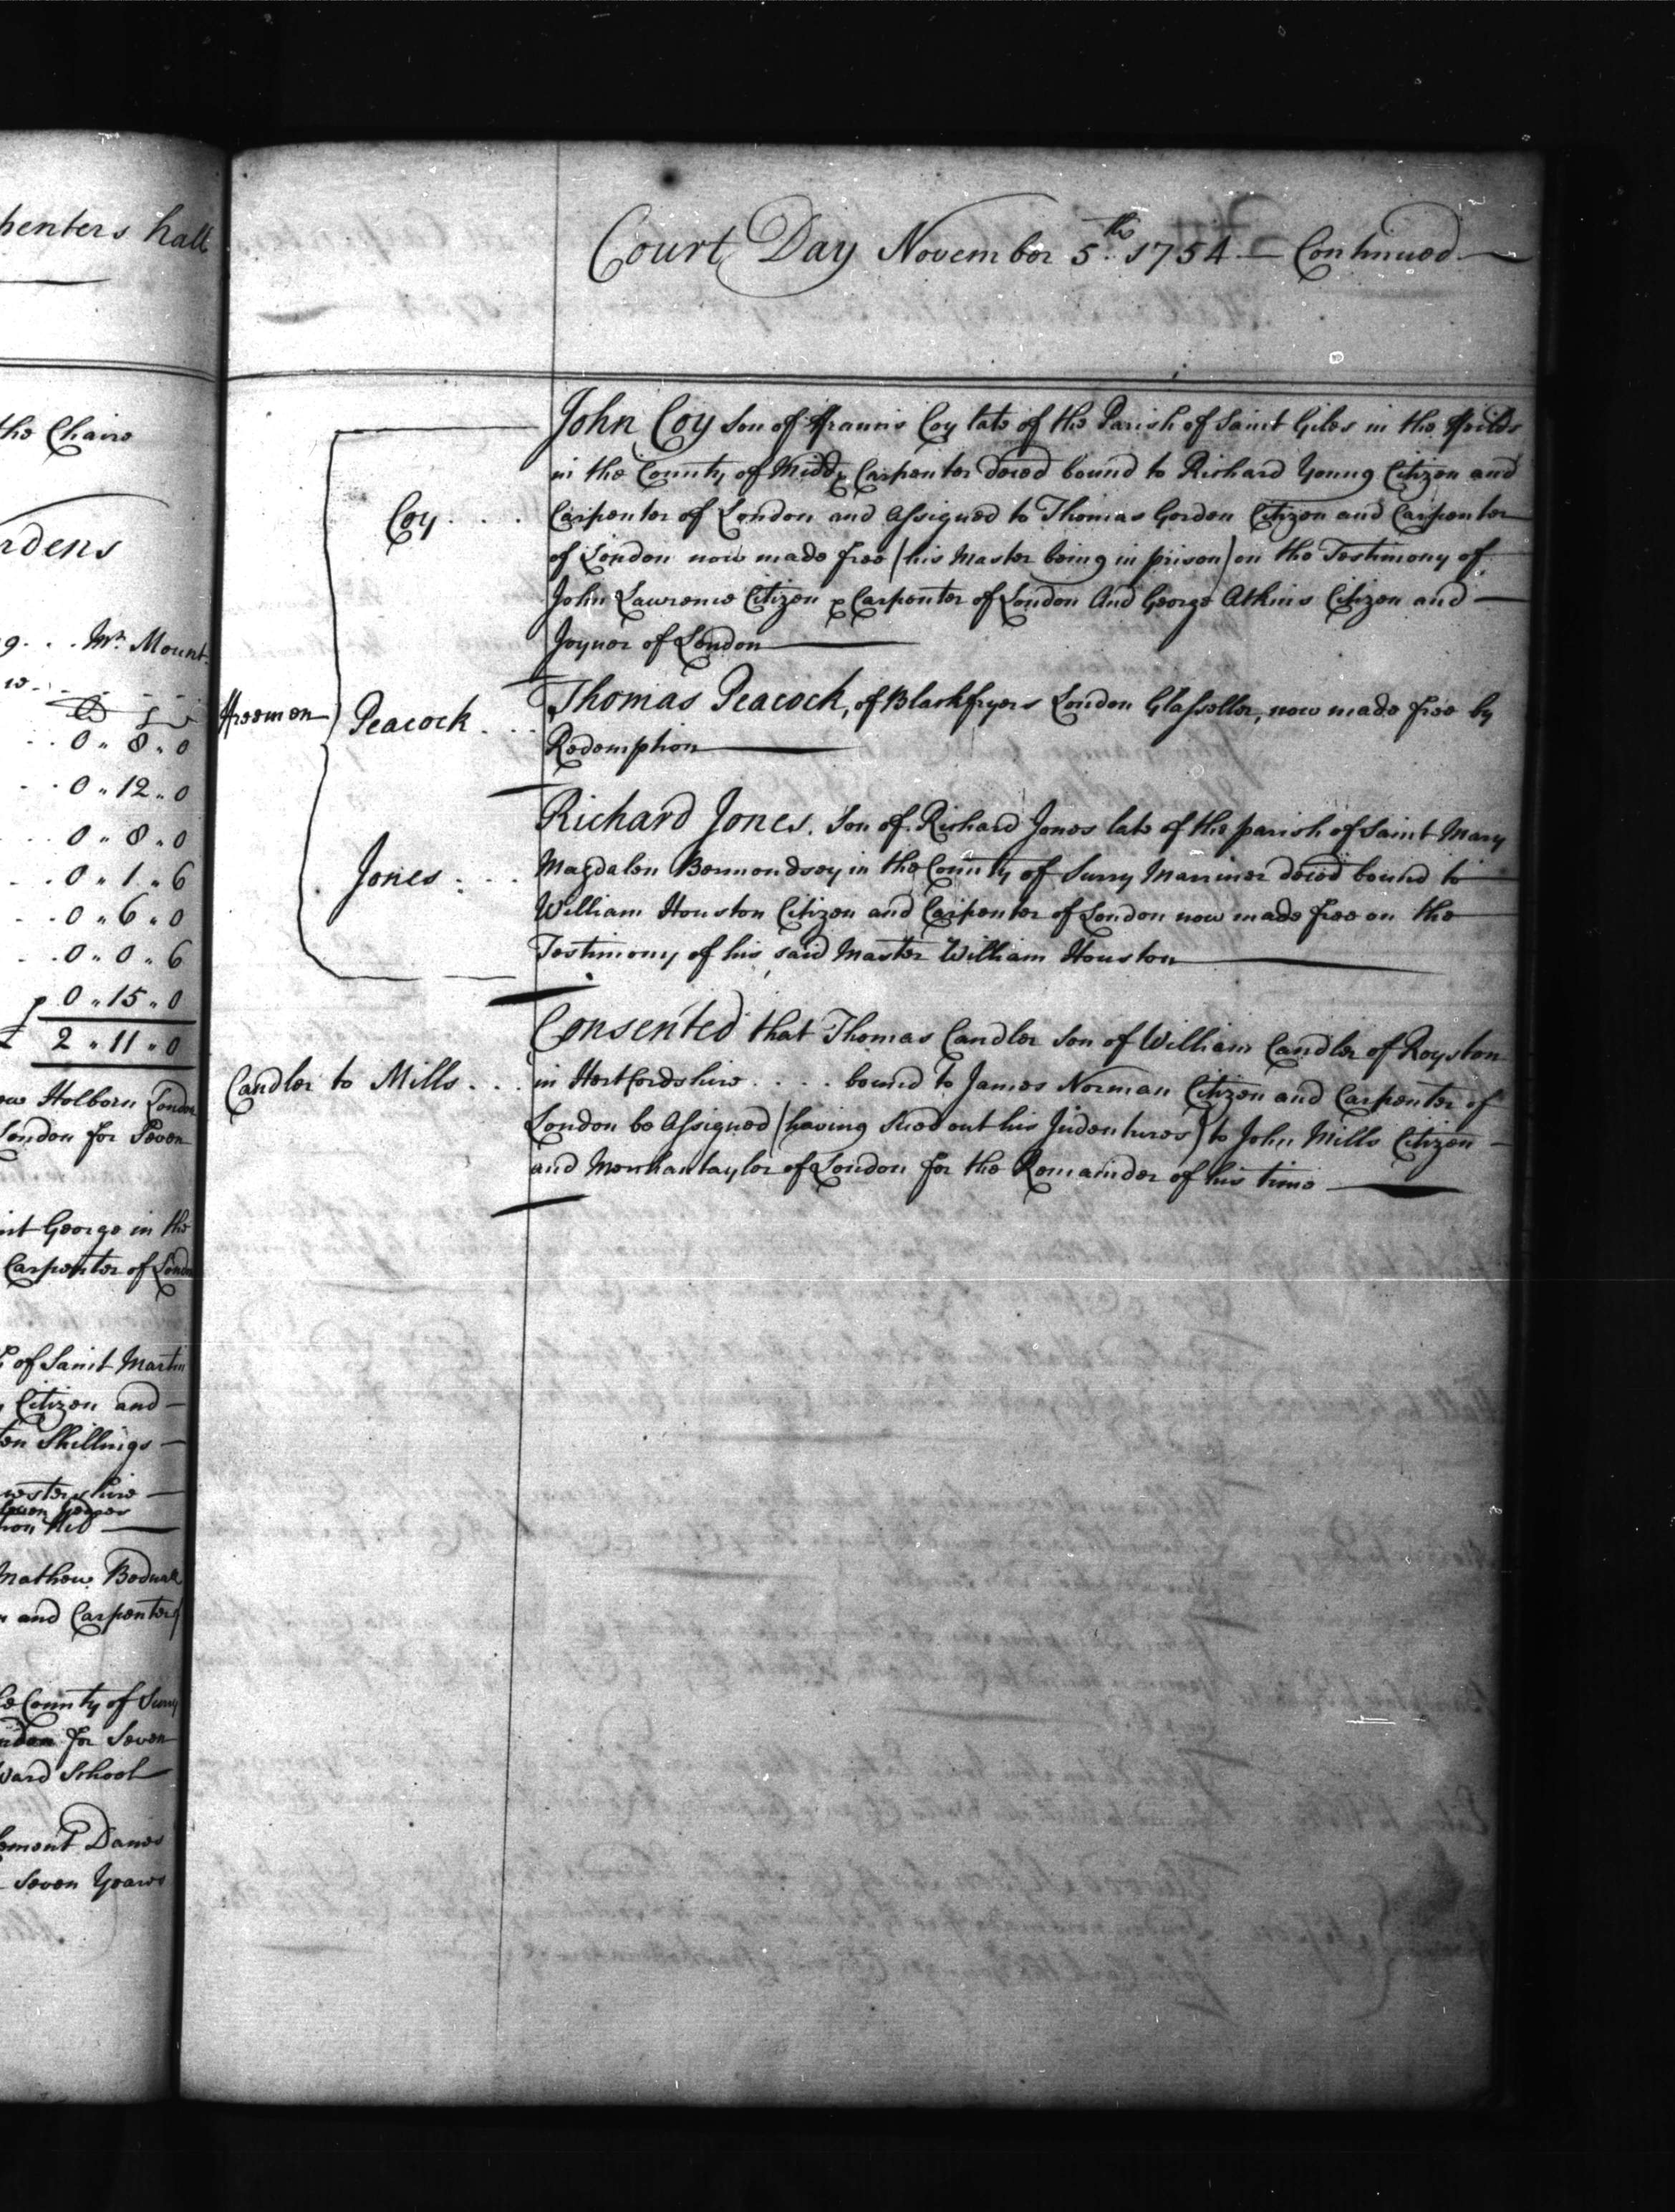 penters hall
the Chaire
rdens
9 . . . Mr. Mount-
0 " 8 " 0
0 " 12 " 0
0 " 8 " 0
0 " 1 " 6
0 " 6 " 0
0 " 0 " 6
0 " 15 " 0
2 " 11 " 0
Holborn London
London for Seven
nt George in the
Carpenter of London
of Saint Martin
Citizen and
ten Shillings
Mathew Bodwell
and Carpenter
County of Surry
for Seven
ward School
lement Danes
Seven Years
Court Day November 5.th 1754 — Continued —
Coy . . . .
John Coy Son of ffrancis Coy late of the Parish of Saint Giles in the ffeilds
in the County of Middx Carpenter deced bound to Richard Young Citizen and
Carpenter of London and Assigned to Thomas Gorden Citizen and Carpenter
of London now made free (his Master being in prison) on the Testimony of
John Lawrence Citizen & Carpenter of London And George Atkins Citizen and —
Joyner of London
ffreemen
Peacock . . .
Thomas Peacock, of Blackfryers London Glasseller, now made free by
Redemption
Jones . . .
Richard Jones. Son of Richard Jones late of the parish of Saint Mary
Magdalen Bermondsey in the County of Surry Marriner deced bound to
William Houston Citizen and Carpenter of London now made free on the
Testimony of his said Master William Houston
Candler to Mills . . .
Consented that Thomas Candler Son of William Candler of Royston
in Hertfordshire . . . . bound to James Norman Citizen and Carpenter of
London be Assigned (having Sued out his Indentures) to John Mills Citizen —
and Merchantaylor of London for the Remainder of his time